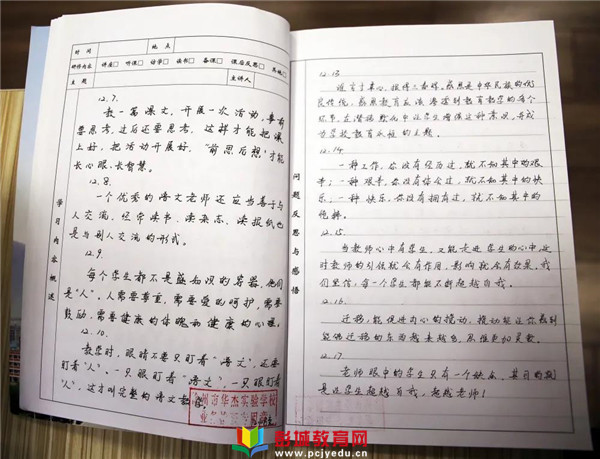 时间 地点
研修内容 讲座□ 听课□ 访学□ 读书□ 备课□ 课后反思□ 其他□
主题 主讲人
学习内容概述
12.7.
教一篇课文,开展一次活动,事前
要思考,过后还要思考,这样才能把课
上好,把活动开展好。"前思后想"才能
长心眼、长智慧。
12.8.
一个优秀的语文老师还应当善于与
人交流,经常读书、读杂志、读报纸也
是与别人交流的形式。
12.9.
每个学生都不是盛知识的容器,他们
是"人",人需要尊重,需要爱的呵护,需要
鼓励,需要健康的体魄和健康的心理。
12.10.
教学时,眼睛不要只盯着"语文",还要
盯着"人",一只眼盯着"语文",一只眼盯着
"人",这才叫完整的语文教
问题反思与感悟
12.13
感恩是中华民族的优
良传统,感恩教育应渗透到教育教学的每个
环节,在潜移默化中让学生增强这种意识,并成
为学校教育永恒的主题。
12.14
一种工作,你没有经历过,就不知其中的艰
辛;一种艰辛,你没有体会过,就不知其中的快
乐,一种快乐,你没有拥有过,就不知其中的
12.15
当教师心中有学生,又能走进学生的心中,这
时教师的引领就会有作用,影响就会有效果,我
们坚信:每一个学生都能不断超越自我。
12.16
迁移,能促进内心的搅动,搅动能让你感到
能够迁移的东西越来越多,思维更加灵敏。
12.17
老师眼中的学生只有一个缺点,其目的就
是让学生超越自我,超越老师!
州市华杰实验学校
彭城教育网
www.pcjyedu.cn